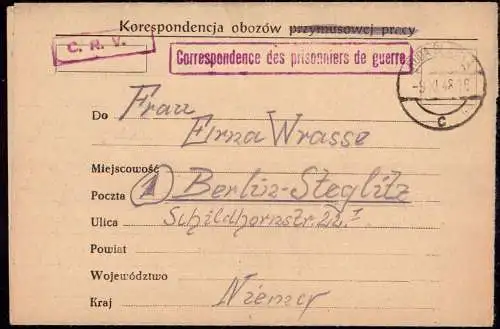 Korespondencja obozów przymusowej pracy
C. R. V.
Correspondence des prisonniers de guerre
Do Frau
Erna Wrasse
Miejscowość
Poczta 1 Berlin-Steglitz
Ulica Schildhornstr. 22 I
Powiat
Województwo
Kraj Niemcy
C